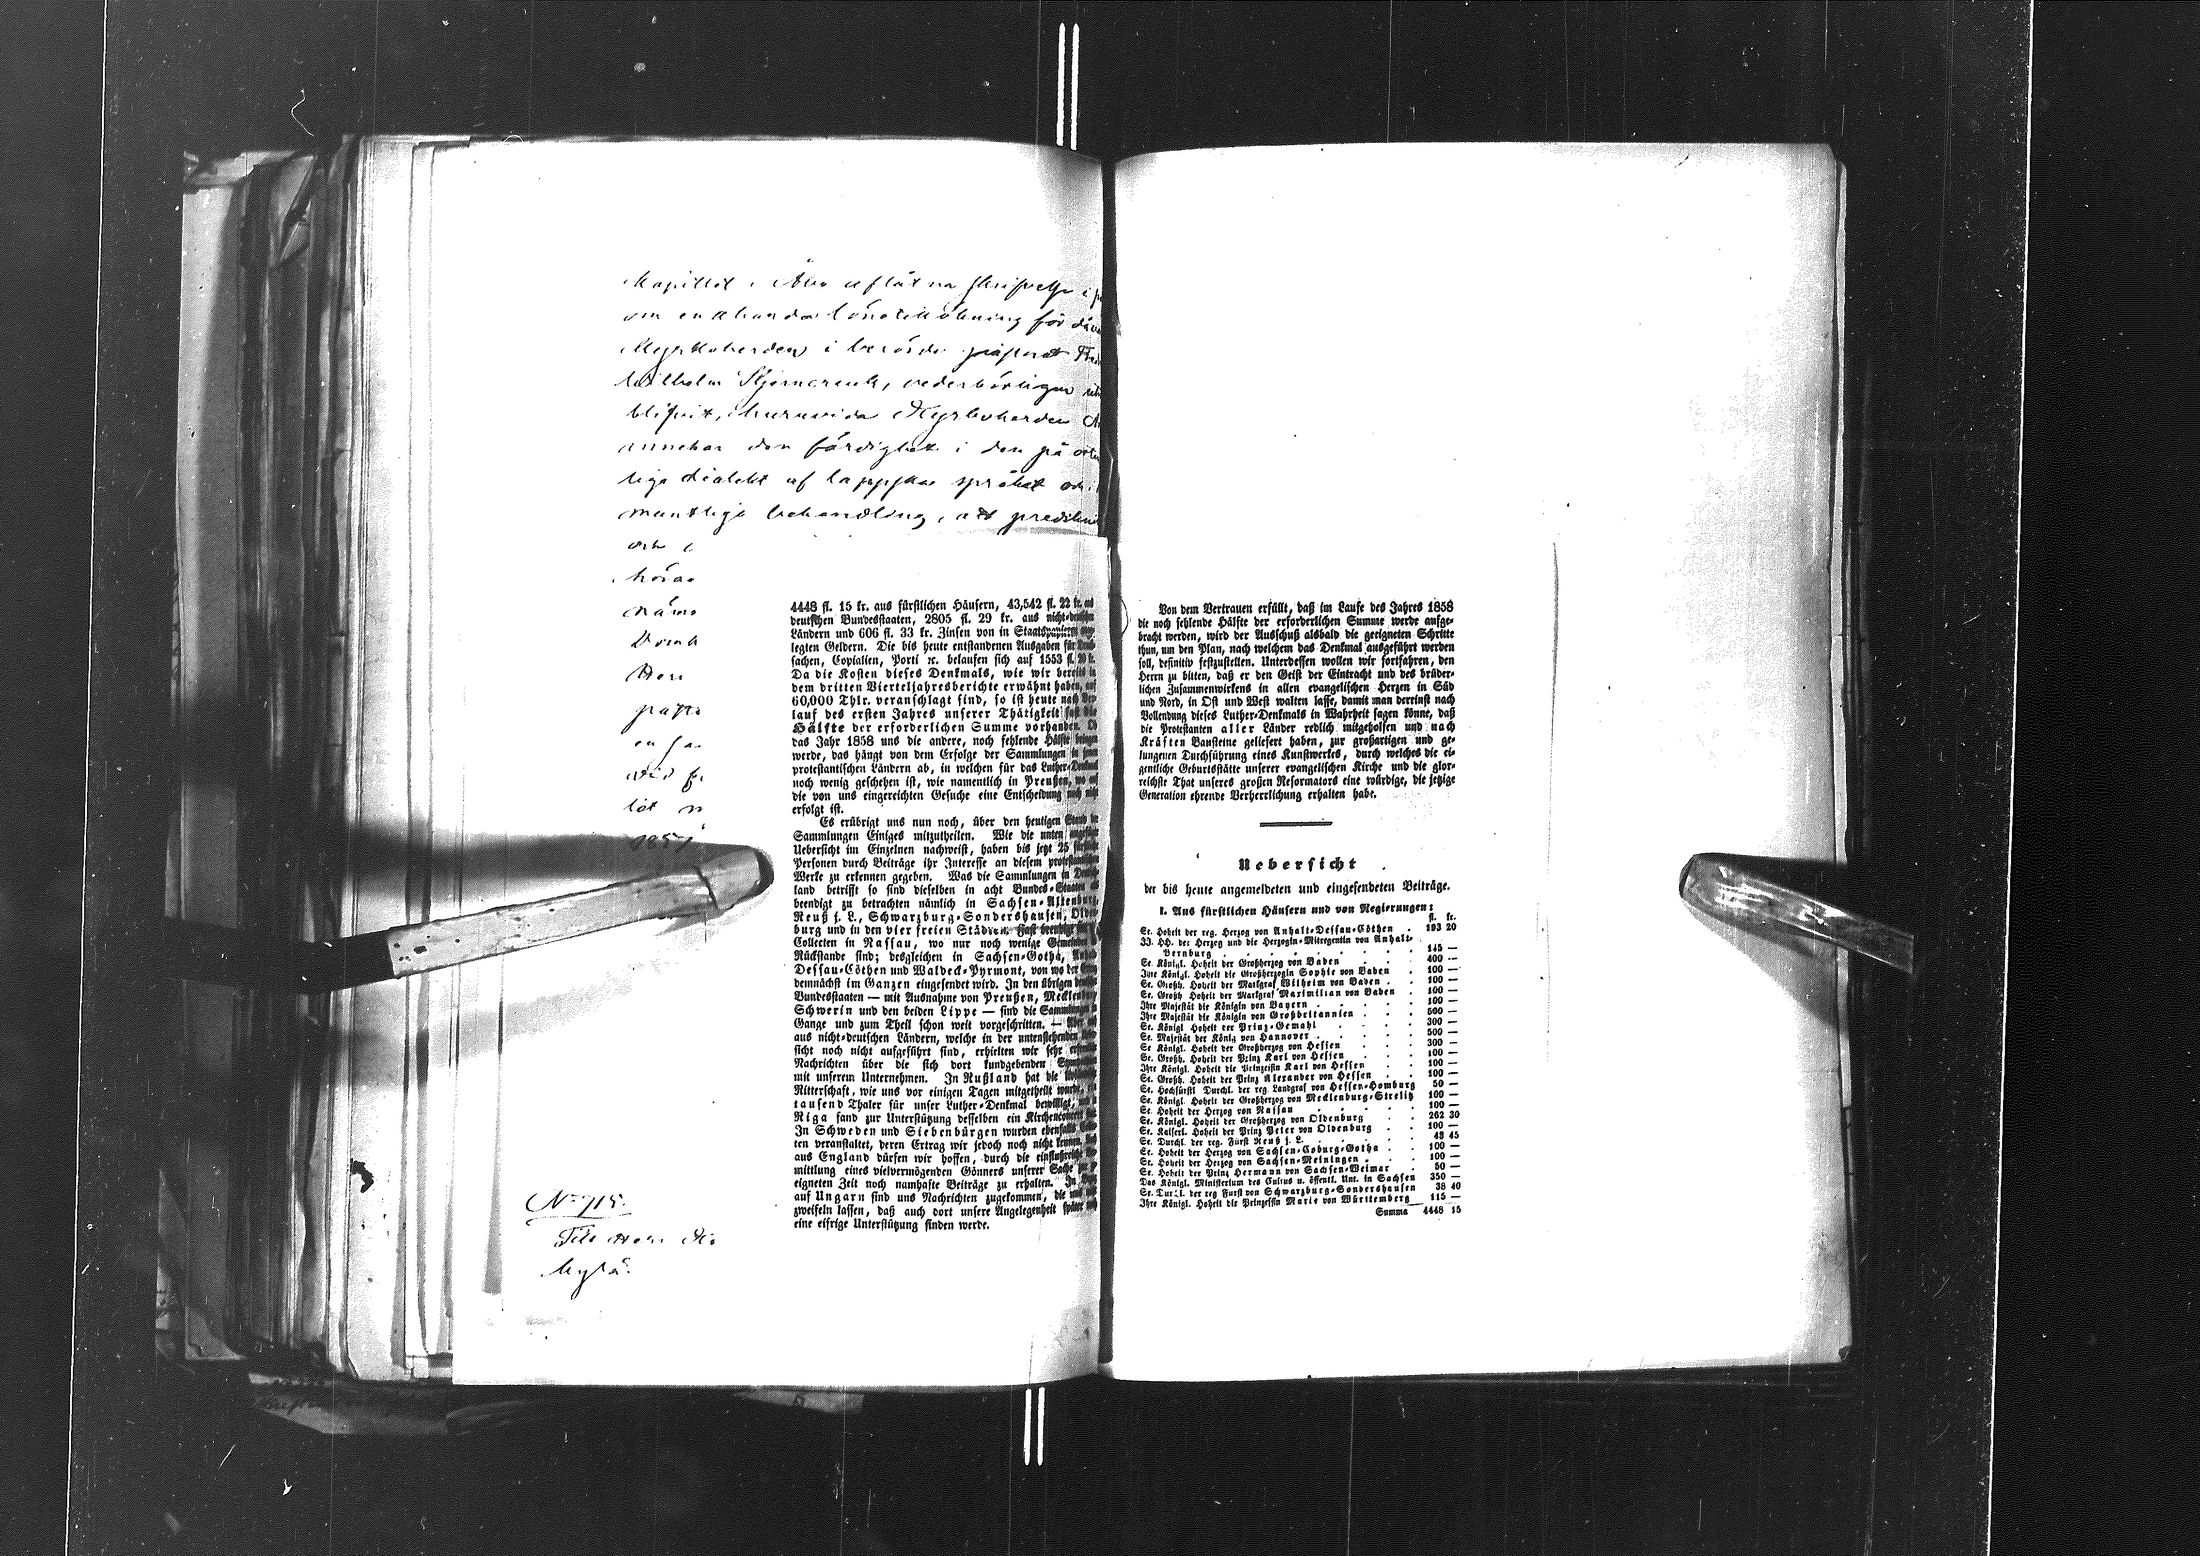 Kapitlet i Åbo aflåtna skrifvelse i
om enahanda lönetillökning för
Kyrkoherden i berörde pastorat
Wilhelm Stjerncreutz, vederbörligen
blifvit, huruvida Kyrkoherden
innehar den färdighet i den på
liga dialekt af lappska språket och
muntliga behandling, att
och
höra
näms
Domk
Herr
pasto
en
vid
låt
1857
No 715.
Till Herr
kyrkoh
4448 fl. 15 kr. aus fürstlichen Häusern, 43,542 fl. 22 kr. aus
deutschen Bundesstaaten, 2805 fl. 29 kr. aus nicht-deutschen
Ländern und 606 fl. 33 kr. Zinsen von in Staatspapieren ange-
legten Geldern. Die bis heute entstandenen Ausgaben für Druck-
sachen, Copialien, Porti ꝛc. belaufen sich auf 1553 fl. 20 kr.
Da die Kosten dieses Denkmals, wie wir bereits in
dem dritten Vierteljahresberichte erwähnt haben, auf
60,000 Thlr. veranschlagt sind, so ist heute nach Ver-
lauf des ersten Jahres unserer Thätigkeit fast die
Hälfte der erforderlichen Summe vorhanden. Ob
das Jahr 1858 uns die andere, noch fehlende Hälfte bringen
werde, das hängt von dem Erfolge der Sammlungen in jenen
protestantischen Ländern ab, in welchen für das Luther-Denkmal
noch wenig geschehen ist, wie namentlich in Preußen, wo auf
die von uns eingereichten Gesuche eine Entscheidung noch nicht
erfolgt ist.
Es erübrigt uns nun noch, über den heutigen Stand der
Sammlungen Einiges mitzutheilen. Wie die unten angefügte
Uebersicht im Einzelnen nachweist, haben bis jetzt 25 fürstliche
Personen durch Beiträge ihr Interesse an diesem protestantischen
Werke zu erkennen gegeben. Was die Sammlungen in Deutsch-
land betrifft so sind dieselben in acht Bundes-Staaten als
beendigt zu betrachten nämlich in Sachsen-Altenburg,
Reuß j. L., Schwarzburg-Sondershausen, Olden-
burg und in den vier freien Städten. Fast beendigt sind die
Collecten in Nassau, wo nur noch wenige Gemeinden im
Rückstande sind; desgleichen in Sachsen-Gotha, Anhalt-
Dessau-Cöthen und Waldeck-Pyrmont, von wo der Ertrag
demnächst im Ganzen eingesendet wird. In den übrigen deutschen
Bundesstaaten — mit Ausnahme von Preußen, Mecklenburg-
Schwerin und den beiden Lippe — sind die Sammlungen im
Gange und zum Theil schon weit vorgeschritten. — Aber auch
aus nicht-deutschen Ländern, welche in der untenstehenden Ueber-
sicht noch nicht aufgeführt sind, erhielten wir sehr erfreuliche
Nachrichten über die sich dort kundgebenden Sympathien
mit unserem Unternehmen. In Rußland hat die
Ritterschaft, wie uns vor einigen Tagen mitgetheilt wurde, ein
tausend Thaler für unser Luther-Denkmal bewilligt, und in
Riga fand zur Unterstützung desselben ein Kirchenconcert statt.
In Schweden und Siebenbürgen wurden ebenfalls Collec-
ten veranstaltet, deren Ertrag wir jedoch noch nicht kennen, und
aus England dürfen wir hoffen, durch die einflußreiche Ver-
mittlung eines vielvermögenden Gönners unserer Sache zu ge-
eigneten Zeit noch namhafte Beiträge zu erhalten. In Bezug
auf Ungarn sind uns Nachrichten zugekommen, die uns nicht
zweifeln lassen, daß auch dort unsere Angelegenheit später noch
eine eifrige Unterstützung finden werde.
Von dem Vertrauen erfüllt, daß im Laufe des Jahres 1858
die noch fehlende Hälfte der erforderlichen Summe werde aufge-
bracht werden, wird der Ausschuß alsbald die geeigneten Schritte
thun, um den Plan, nach welchem das Denkmal ausgeführt werden
soll, definitiv festzustellen. Unterdessen wollen wir fortfahren, den
Herrn zu bitten, daß er den Geist der Eintracht und des brüder-
lichen Zusammenwirkens in allen evangelischen Herzen in Süd
und Nord, in Ost und West walten lasse, damit man dereinst nach
Vollendung dieses Luther-Denkmals in Wahrheit sagen könne, daß
die Protestanten aller Länder redlich mitgeholfen und nach
Kräften Bausteine geliefert haben, zur großartigen und ge-
lungenen Durchführung eines Kunstwerkes, durch welches die ei-
gentliche Geburtsstätte unserer evangelischen Kirche und die glor-
reichste That unseres großen Reformators eine würdige, die jetzige
Generation ehrende Verherrlichung erhalten habe.
Uebersicht
der bis heute angemeldeten und eingesendeten Beiträge.
I. Aus fürstlichen Häusern und von Regierungen:
fl. kr.
Se. Hoheit der reg. Herzog von Anhalt-Dessau-Cöthen . 193 20
JJ. HH. der Herzog und die Herzogin-Mitregentin von Anhalt-
Bernburg . . . . . . . . 145 —
Se. Königl. Hoheit der Großherzog von Baden . . . 400 —
Ihre Königl. Hoheit die Großherzogin Sophie von Baden . 100 —
Se. Großh. Hoheit der Markgraf Wilhelm von Baden . . 100 —
Se. Großh. Hoheit der Markgraf Maximilian von Baden . 100 —
Ihre Majestät die Königin von Bayern . . . . 100 —
Ihre Majestät die Königin von Großbritannien . . . 500 —
Se. Königl. Hoheit der Prinz-Gemahl . . . . 300 —
Se. Majestät der König von Hannover . . . . 500 —
Se. Königl. Hoheit der Großherzog von Hessen . . . 300 —
Se. Großh. Hoheit der Prinz Karl von Hessen . . . 100 —
Ihre Königl. Hoheit die Prinzessin Karl von Hessen . . 100 —
Se. Großh. Hoheit der Prinz Alexander von Hessen . . 100 —
Se. Hochfürstl. Durchl. der reg. Landgraf von Hessen-Homburg 50 —
Se. Königl. Hoheit der Großherzog von Mecklenburg-Strelitz 100 —
Se. Hoheit der Herzog von Nassau . . . . 100 —
Se. Königl. Hoheit der Großherzog von Oldenburg . . 262 30
Se. Kaiserl. Hoheit der Prinz Peter von Oldenburg . . 100 —
Se. Durchl. der reg. Fürst Reuß j. L. . . . . 43 45
Se. Hoheit der Herzog von Sachsen-Coburg-Gotha . . 100 —
Se. Hoheit der Herzog von Sachsen-Meiningen . . . 100 —
Se. Hoheit der Prinz Hermann von Sachsen-Weimar . 50 —
Das Königl. Ministerium des Cultus u. öffentl. Unt. in Sachsen 350 —
Se. Durchl. der reg Fürst von Schwarzburg-Sondershausen 38 40
Ihre Königl. Hoheit die Prinzessin Marie von Württemberg 115 —
Summa 4448 15